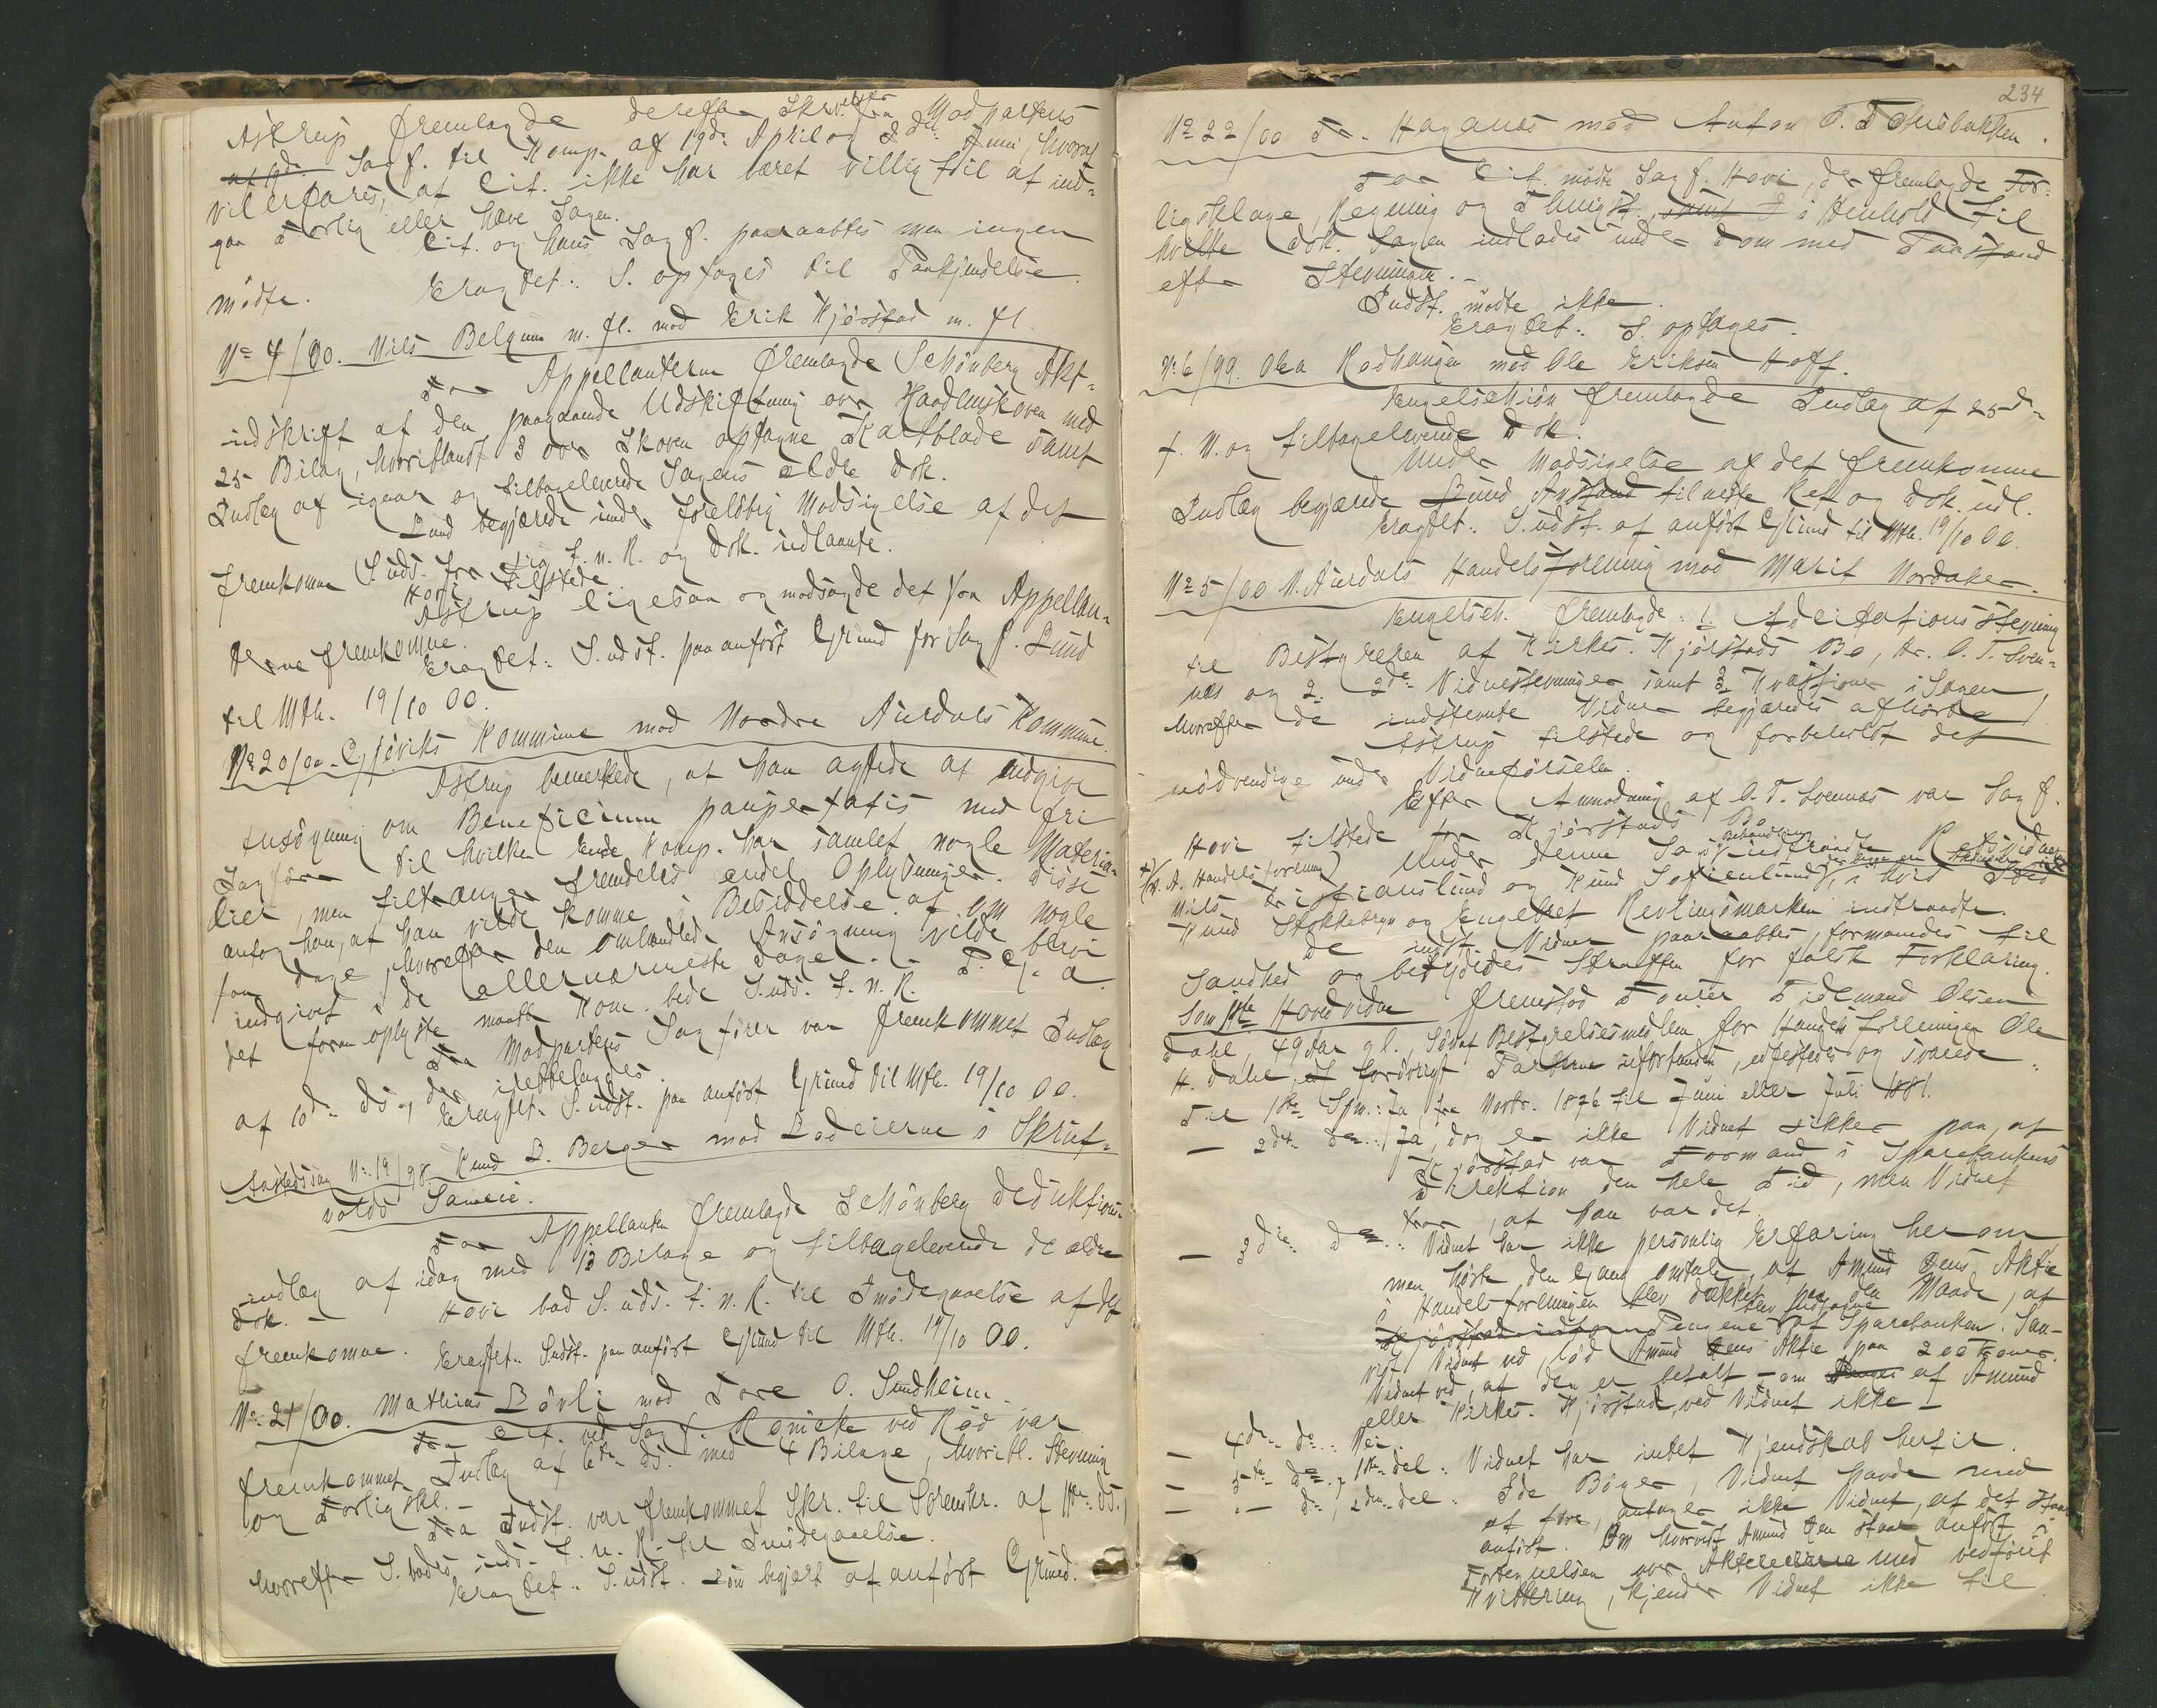 Astrup fremlagde derefter Skrivelser fra Modpartens
Sagf. til Komp. af 19de April og 2den Juni, hvoraf
vil erfares, at Cit. ikke har været villig til at ind-
gaa Forlig eller hæve Sagen.
Cit. og hans Sagf. paaraabtes men ingen
mødte.
Eragtet: S. optages til Paakjendelse.
No 4/00. Nils Belgum m. fl. mod Erik Kjørstad m. fl.
For Appellanterne fremlagde Schönberg Akt-
indskrift af den paagaaende Udskiftning over Haademskoven med
25 Bilag, hvoriblandt 3 over Skoven optagne Kartblade samt
Indlæg af igaar og tilbageleverede Sagens ældre Dok.
Lund begjærede under foreløbig Modsigelse af det
fremkomne S. uds. for sig t. n. R. og Dok. udlaante.
Hovi tilstede.
Astrup ligesaa og modsagde det fra Appellan-
terne fremkomne.
Eragtet: S. udst. paa anført Grund for Sagf. Lund
til Mth. 19/10 00.
No 20/00. Gjøviks Kommune mod Nordre Aurdals Kommune.
Astrup bemærkede, at han agtede at indgive
Ansøgning om Beneficium paupertatis med fri
Sagfører til hvilken Ende Komp. har samlet nogle Materia-
lier, men tiltrænger fremdeles endel Oplysninger. Disse
antog han, at han vilde komme i Besiddelse af om nogle
faa Dage, hvorefter den omhandlede Ansøgning vilde blive
indgivet i de allernærmeste Dage. P. G. a.
det foran oplyste maatte Kom. bede S. uds. t. n. R.
Fra Modpartens Sagfører var fremkommet Indlæg
af 10de ds., der irettelagdes.
Eragtet: S. udst. paa anført Grund til Mth. 19/10 00.
Aastedssag No 19/98. Knud L. Berger mod Lodeierne i Skrut-
volds Sameie.
For Appellanten fremlagde Schönberg Deduktions-
indlæg af idag med 13 Bilage og tilbageleverede de ældre
Dok. – Hovi bad S. uds. t. n. R. til Imødegaaelse af det
fremkomne.
Eragtet: S. udst. paa anført Grund til Mth. 19/10 00.
No 21/00. Mathias Bövli mod Tore O. Sundheim.
For Cit. ved Sagf. Konicke ved Röd var
fremkommet Indlæg af 6te ds. med 4 Bilage, hvoribl. Stevning
og Forligskl. –
Fra Indst. var fremkommet Skr. til Sorenskr. af 11te ds.,
hvorefter S. bades uds. t. n. R. til Imødegaaelse.
Eragtet: S. udst. som begjært af anført Grund.
234
No 22/00 Fr. Haganæs mod Anton P.
For Cit. møtte Sagf. Hovi, der fremlagde For-
ligsklage, Regning og i Henhold til
hvilke Dok. Sagen indlodes under Dom med Paastand
efter Stevningen. –
Indst. mødte ikke.
Eragtet: S. optages.
No 6/99. Olea Rodhaugen mod Ole Eriksen Hoff.
Engelschiøn fremlagde Indlæg af 25de
f. M. og tilbageleverede Dok.
Under Modsigelse af det fremkomne
Indlæg begjærede Lund Anstand til næste Ret og Dok. udl.
Eragtet: S. udst. af anført Grund til Mth. 19/10 00.
No 5/00 N. Aurdals Handelsforening mod Marit Nordaker.
Engelsch. fremlagde: 1. Adcitationsstevning
til Bestyreren af Kirkes. Kjørstads Bo, Hr. O. T. Sven-
næs og 2. 2de Vidnestevninger samt 3 Kvæstioner i Sagen,
hvorefter de indstevnte Vidner begjæredes afhørte.
Astrup tilstede og forbeholdt det
nødvendige under Vidneførselen.
Efter Anmodning af O. T. Svennæs var Sagf.
Hovi tilstede for Kjørstads Bo.
(N. A. Handelsforening) Under denne Sags Behandling indtraadte Retsvidner
Nils Kristianslund og Knud Sofienlund, i hvis Sted
Knud Stokkebryn og Engebret Revlingsmarken indtraadte.
De indst. Vidner paaraabtes, formanedes til
Sandhed og betydedes Straffen for falsk Forklaring.
Som 1ste Hovedvidne fremstod Tidemand Olsen
Dahl, 49 Aar gl., Søn af Bestyrelsesmedlem for Handelsforeningen Ole
H. Dahl, forøvrigt Parterne ubeslægtet, edfæstedes og svarede:
Til 1ste Spm.: Ja fra Novbr. 1876 til Juni eller Juli 1881.
– 2det do.: Ja, dog er ikke Vidnet sikker paa, at
Kjørstad var Formand i Sparebankens
Direktion den hele Tid, men Vidnet
tror, at han var det.
– 3die do.: Vidnet har ikke personlig Erfaring herom
men hørte den Gang omtale, at Amund Aktie
i Handelsforeningen blev dækket paa den Maade, at
Pengene blev udtagne af Sparebanken. Saa-
vidt Vidnet ved, lød Amund Aktie paa 200 Kroner.
Vidnet ved, at den er betalt – om af Amund
eller Kirkes. Kjørstad, ved Vidnet ikke. –
– 4de do.: Nei.
– 5te do., 1ste del: Vidnet har intet Kjendskab hertil.
– " – do., 2den del: I de Bøger, Vidnet havde med
at føre, antager ikke Vidnet, at det staar
anført. Om hvorvidt Amund staar anført i
Fortegnelsen over Aktieeierne med vedført
Kvittering, kjender Vidnet ikke til.